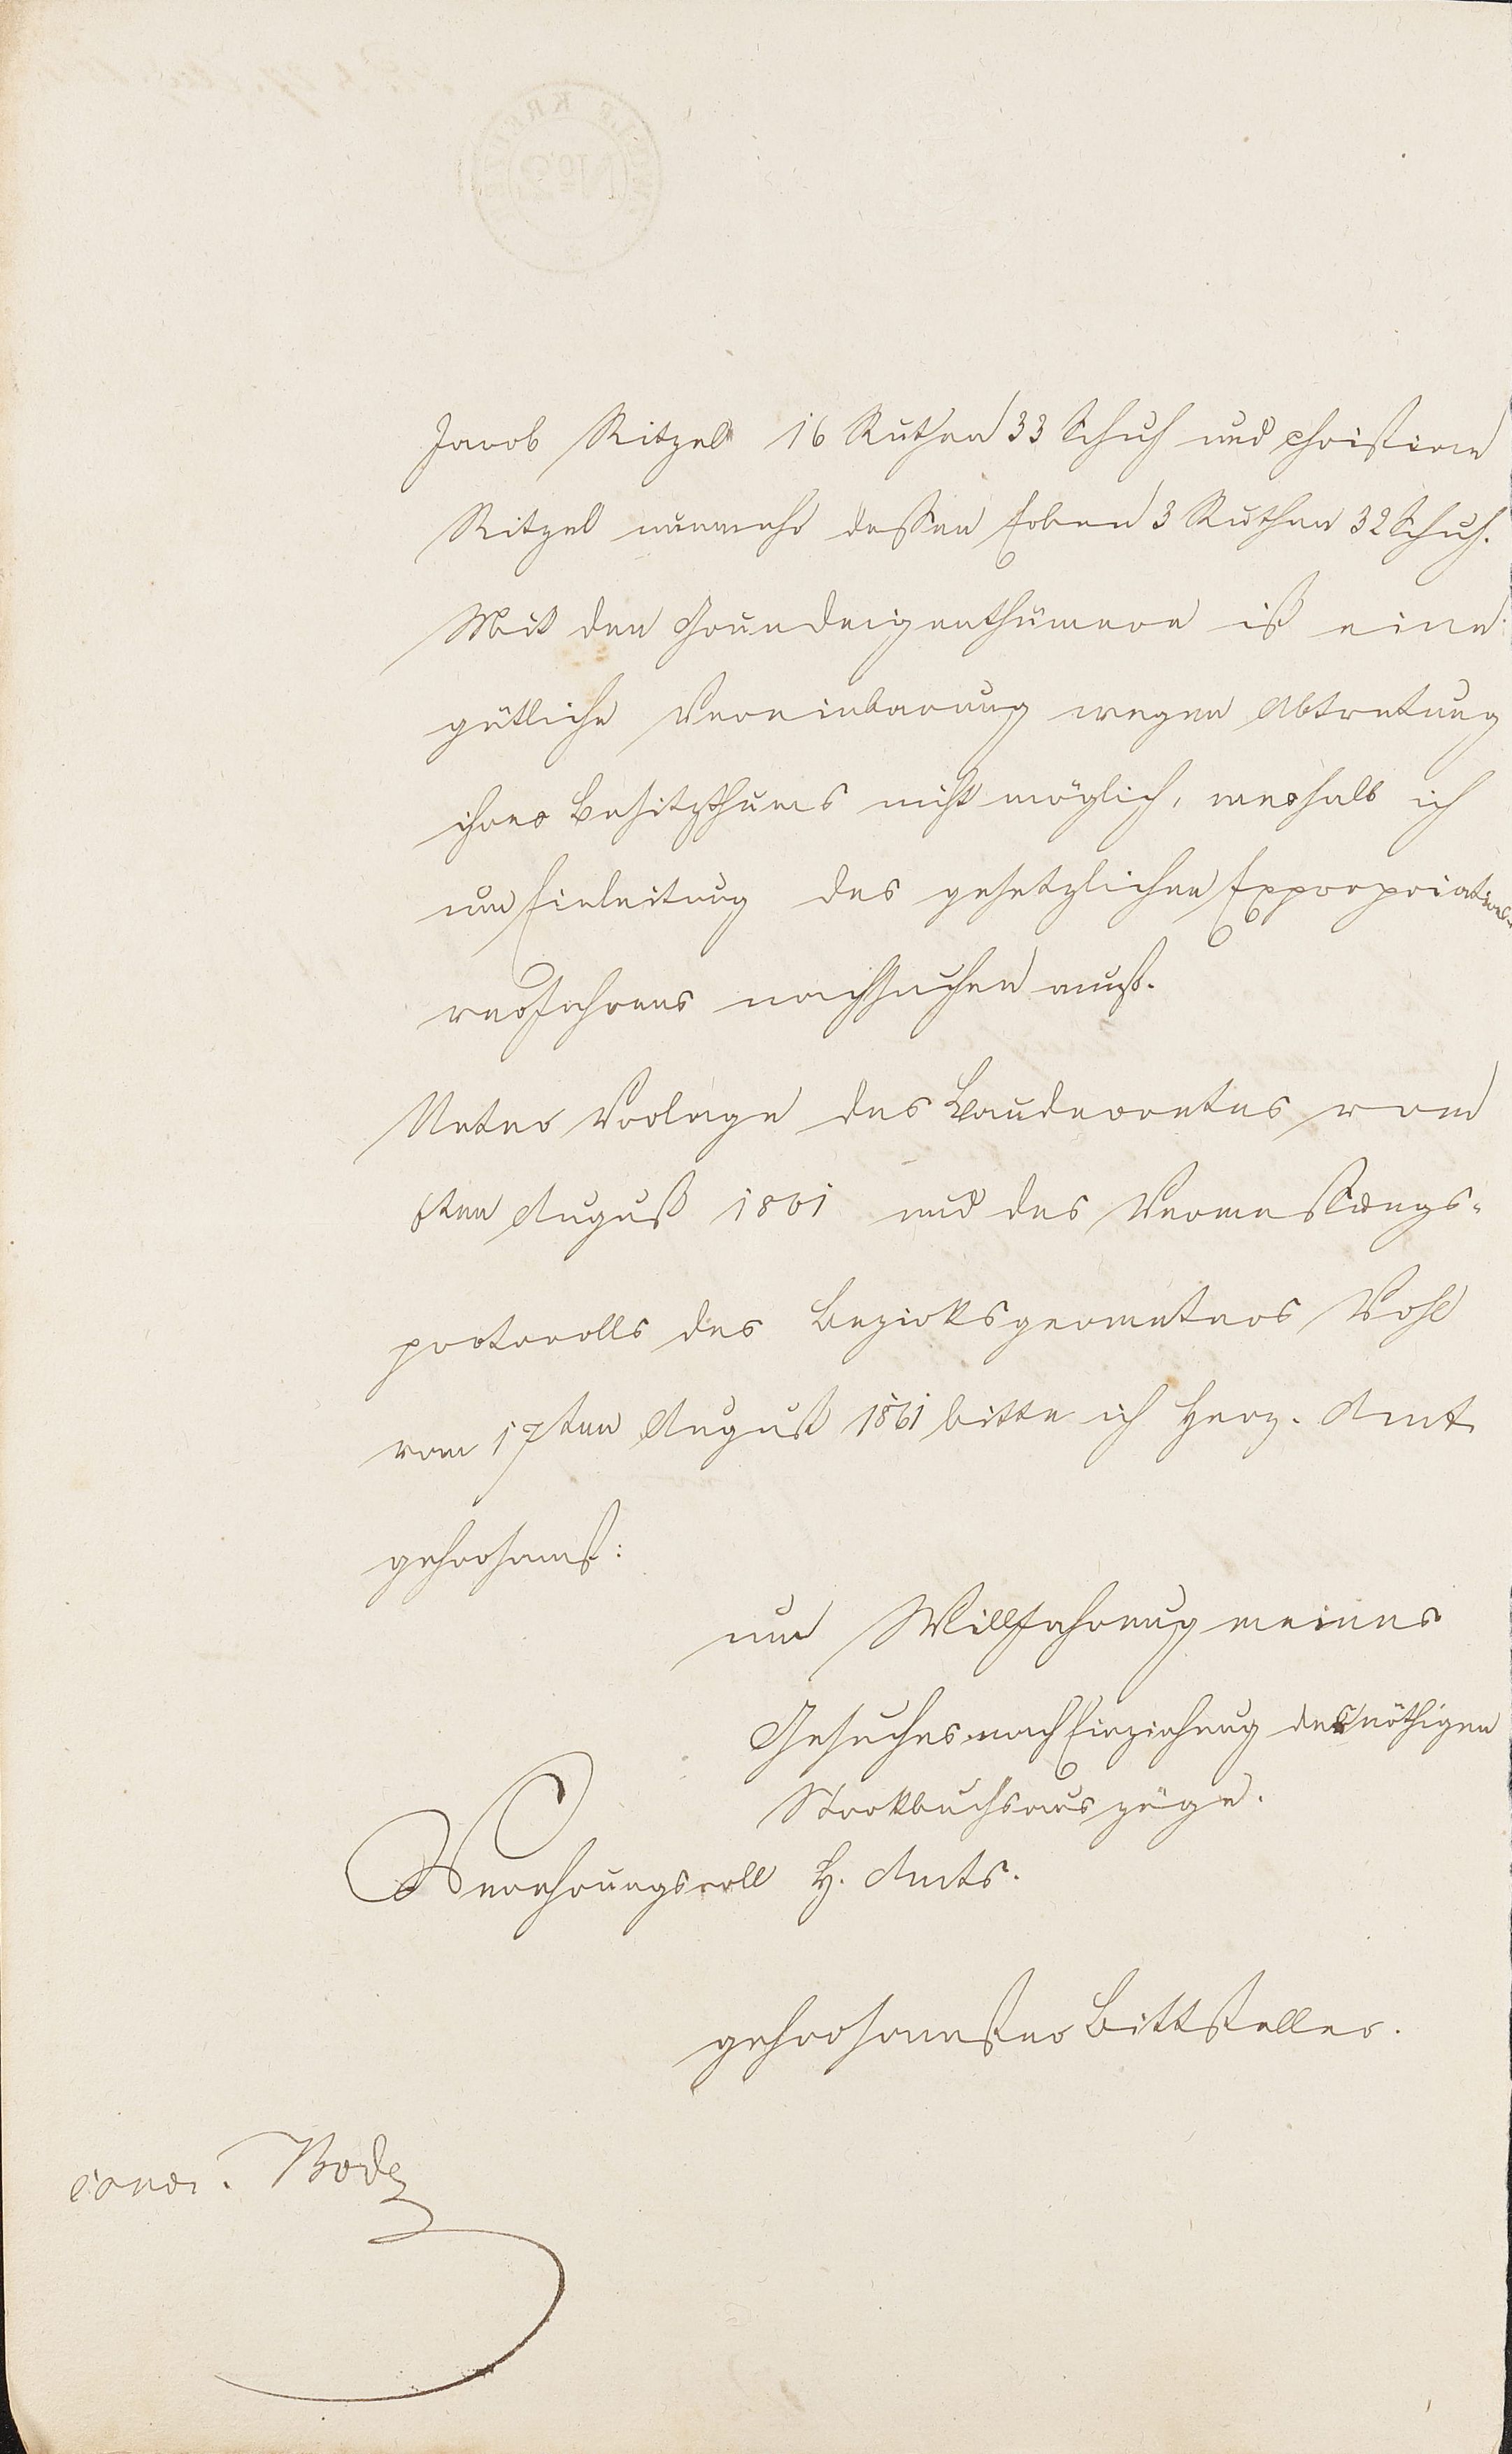 Jacob Ritzel 16 Ruthen 33 Schuh und Christian
Ritzel nunmehr dessen Erben 3 Ruthen 32 Schuh.
Mit den Grundeigenthümern ist eine
gütliche Vereinbarung wegen Abtretung
ihres Besitzthums nicht möglich, weshalb ich
um Einleitung des gesetzlichen Expropriations
verfahrens nachsuchen muß.
Unter Vorlage des Baudecretes vom
6ten August 1861 und des Vermessungs-
protocolls des Bezirksgeometers Vohl
vom 17ten August 1861 bitte ich Herz. Amt
gehorsamst:
um Willfahrung meines
Gesuches nach Einziehung der nöthigen
Stockbuchsauszüge.
Verehrungsvoll H. Amts.
gehorsamster Bittsteller.
conc. Bode